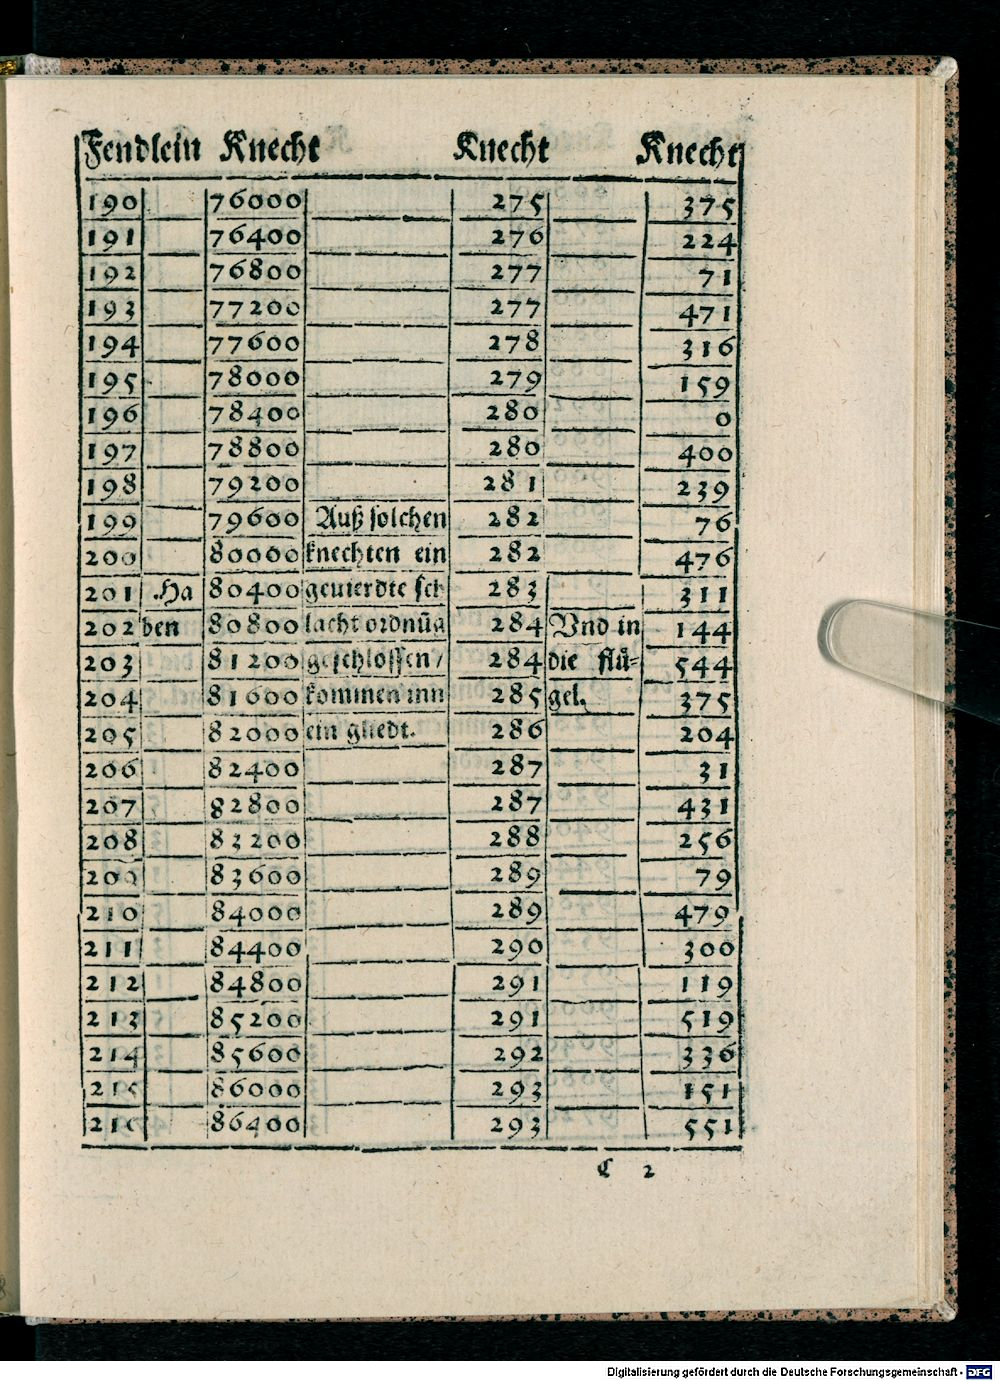 Fendlein Knecht Knecht Knecht
190 76000 275 375
191 76400 276 224
192 76800 277 71
193 77200 277 471
194 77600 278 316
195 78000 279 159
196 78400 280 0
197 78800 280 400
198 79200 281 239
199 79600 Auß solchen 282 76
200 80000 knechten ein 282 476
201 Ha 80400 geuierdte sch 283 311
202 ben 80800 lacht ordnũg 284 Vnd in 144
203 81200 geschlossen/ 284 die flü- 544
204 81600 kommen inn 285 gel. 375
205 82000 ein gliedt. 286 204
206 82400 287 31
207 82800 287 431
208 83200 288 256
209 83600 289 79
210 84000 289 479
211 84400 290 300
212 84800 291 119
213 85200 291 519
214 85600 292 336
215 86000 293 151
216 86400 293 551
C 2
Digitalisierung gefördert durch die Deutsche Forschungsgemeinschaft - DFG